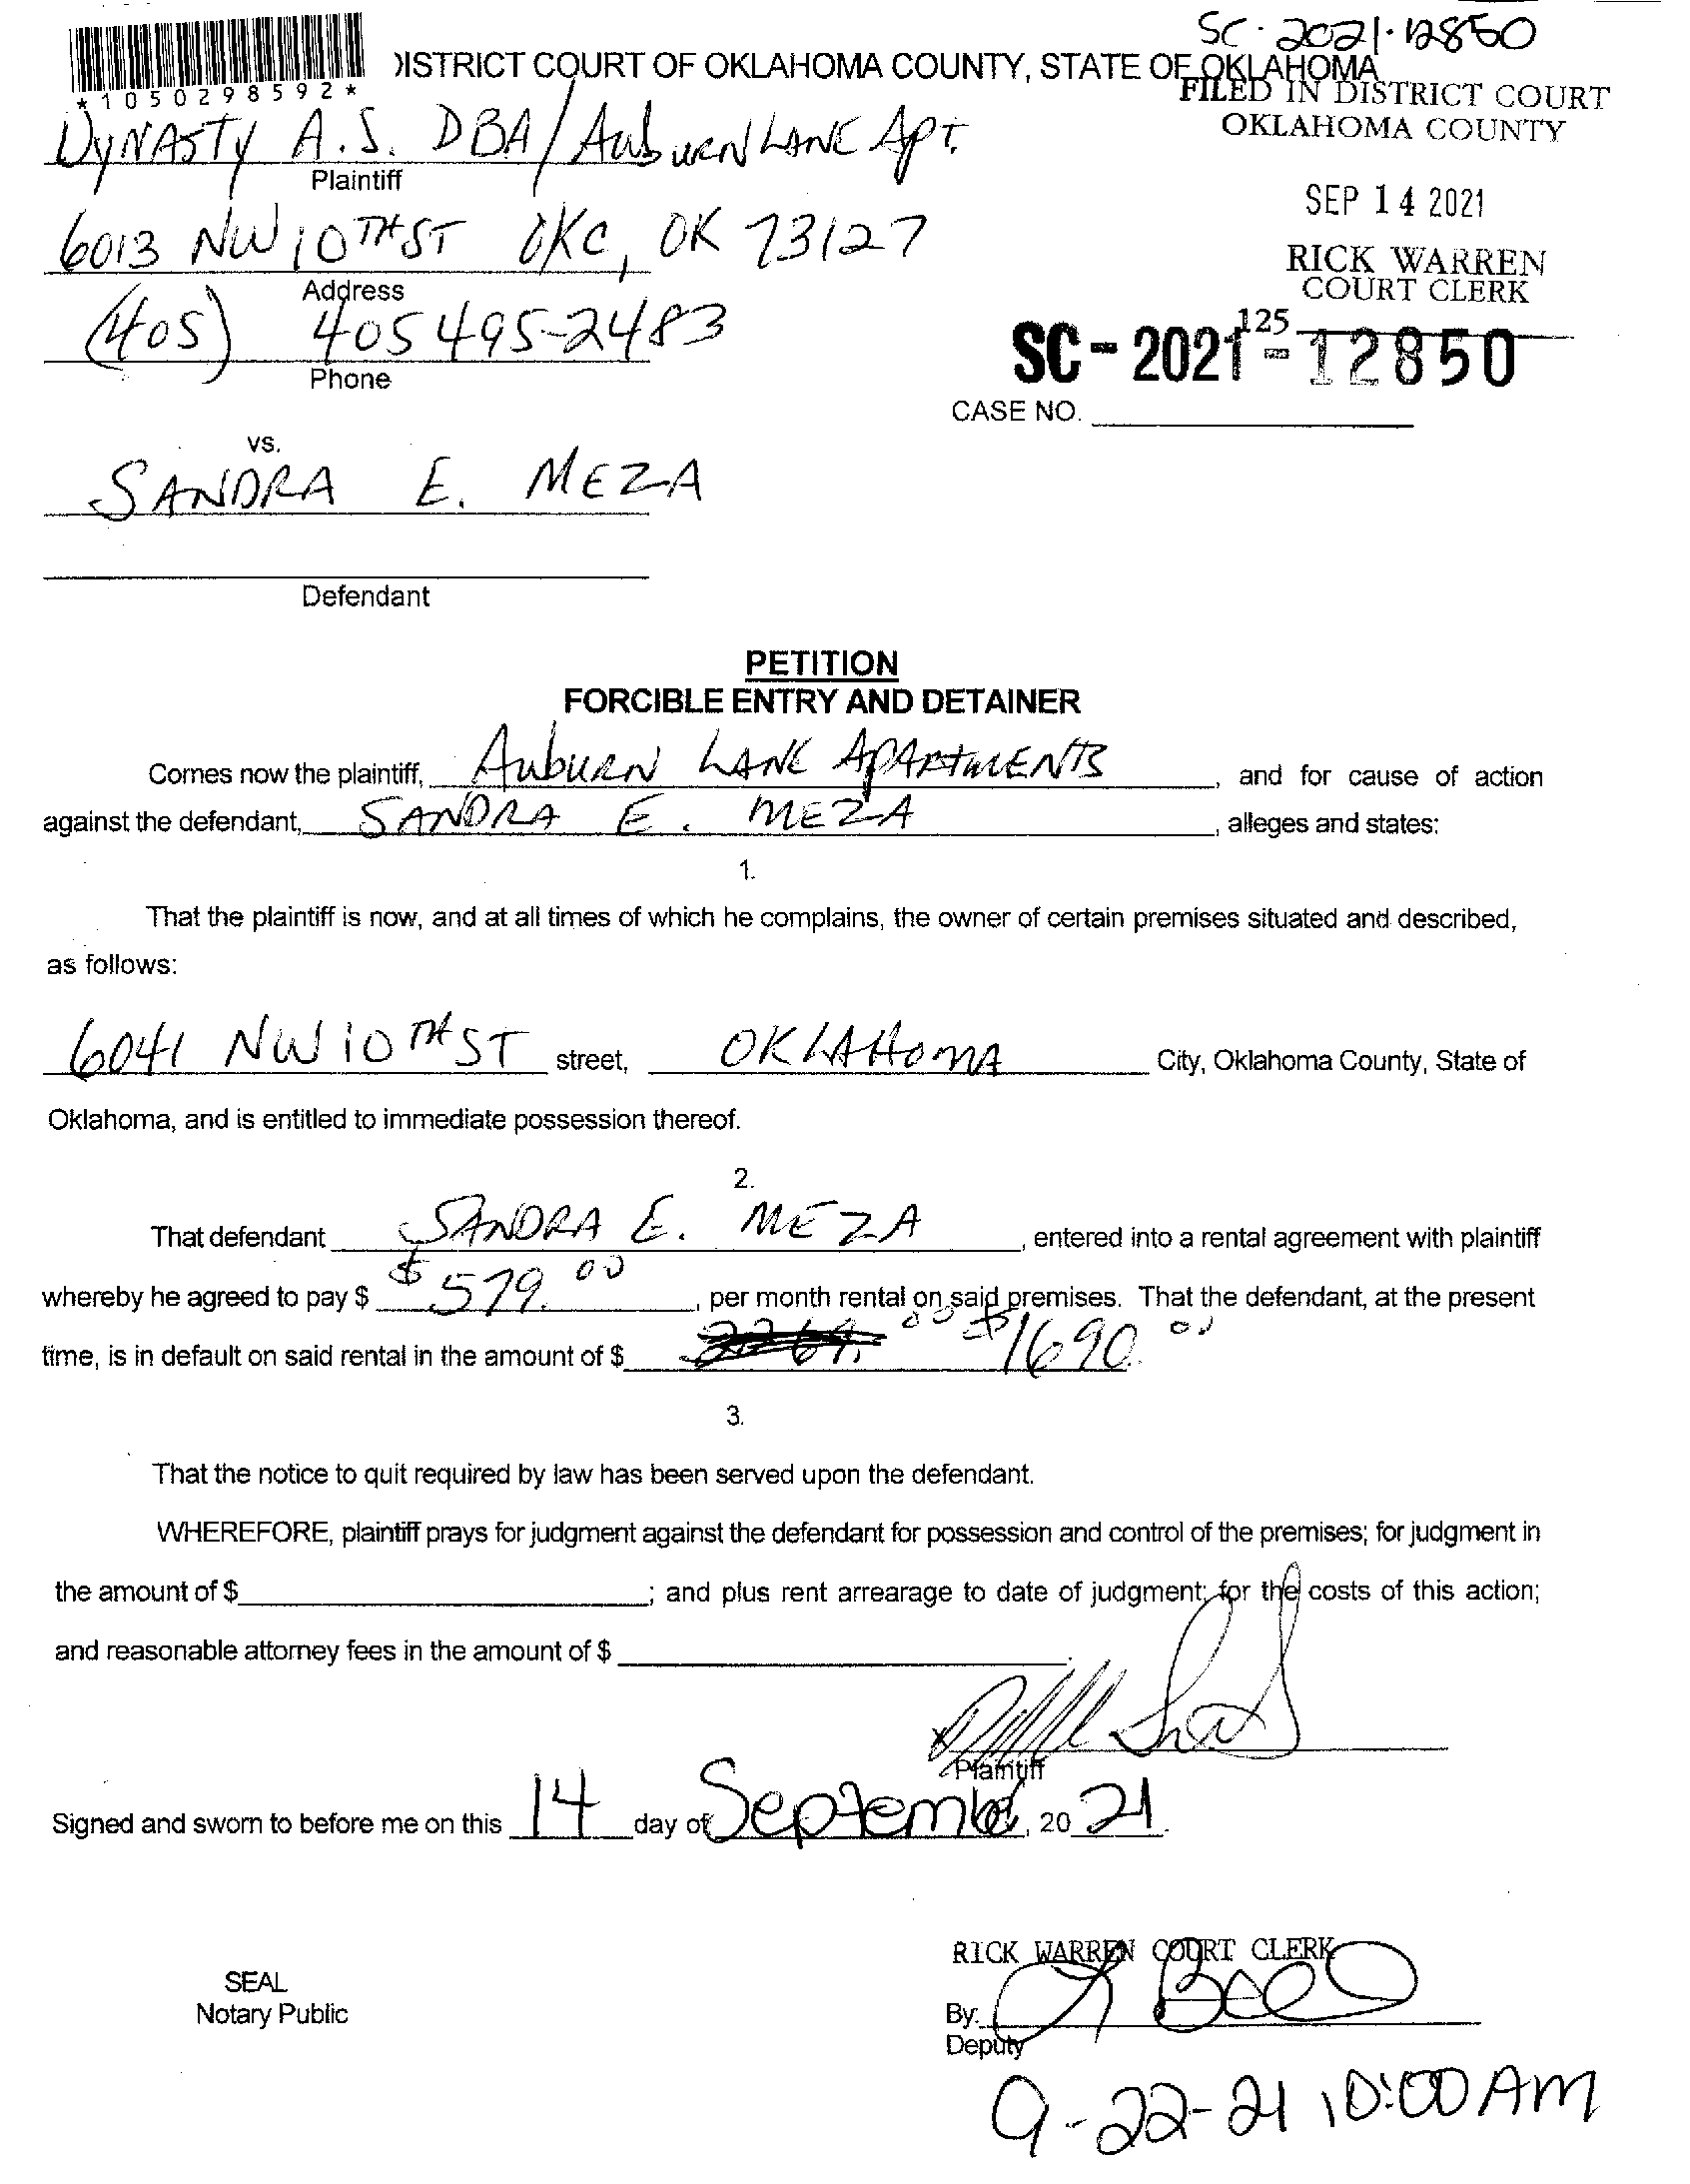 SC-2021-12850
*1050298592*
DISTRICT COURT OF OKLAHOMA COUNTY, STATE OF OKLAHOMA
FILED IN DISTRICT COURT
OKLAHOMA COUNTY
DYNASTY A.S. DBA/ AUBURN LANE APT.
Plaintiff
SEP 14 2021
6013 NW 10TH ST OKC, OK 73127
Address
RICK WARREN
COURT CLERK
(405) 405 495-2483
Phone
125
SC-2021-12850
CASE NO.
vs.
SANDRA E. MEZA
Defendant
PETITION
FORCIBLE ENTRY AND DETAINER
Comes now the plaintiff, AUBURN LANE APARTMENTS, and for cause of action
against the defendant, SANDRA E. MEZA, alleges and states:
1.
That the plaintiff is now, and at all times of which he complains, the owner of certain premises situated and described,
as follows:
6041 NW 10TH ST street, OKLAHOMA City, Oklahoma County, State of
Oklahoma, and is entitled to immediate possession thereof.
2.
That defendant SANDRA E. MEZA, entered into a rental agreement with plaintiff
whereby he agreed to pay $ $579.00, per month rental on said premises. That the defendant, at the present
time, is in default on said rental in the amount of $ 00 $1690.00
3.
That the notice to quit required by law has been served upon the defendant.
WHEREFORE, plaintiff prays for judgment against the defendant for possession and control of the premises; for judgment in
the amount of $ ; and plus rent arrearage to date of judgment; for the costs of this action;
and reasonable attorney fees in the amount of $ .
X
Plaintiff
Signed and sworn to before me on this 14 day of September, 20 21.
RICK WARREN COURT CLERK
SEAL
Notary Public
By:
Deputy
9-22-21 10:00 AM